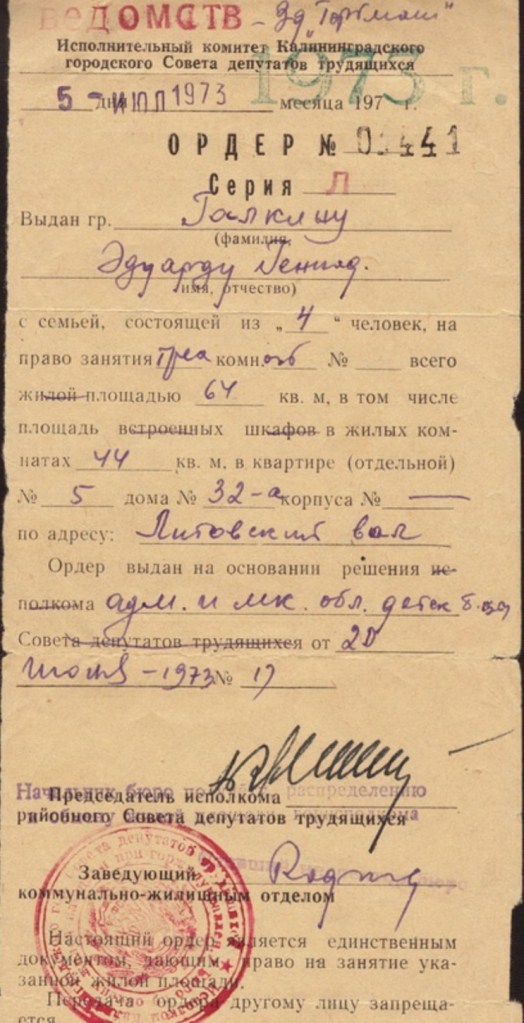 ВЕДОМСТВ - Зд "Торгмаш"
Исполнительный комитет Калининградского
городского Совета депутатов трудящихся
1973 г.
5 дня ИЮЛ 1973 месяца 197 г.
ОРДЕР № 01441
Серия Л
Выдан гр. Галкину
(фамилия,
Эдуарду Геннад.
имя, отчество)
с семьей, состоящей из „4“ человек, на
право занятия трех комн. № всего
жилой площадью 64 кв. м, в том числе
площадь встроенных шкафов в жилых ком-
натах 44 кв. м, в квартире (отдельной)
№ 5 дома № 32-а корпуса № —
по адресу: Литовский вал
Ордер выдан на основании решения ис-
полкома адм. и мк. обл. детск б-цы
Совета депутатов трудящихся от 20
июля - 1973 № 17
Начальник бюро по распределению
Председатель исполкома
районного Совета депутатов трудящихся
Заведующий
коммунально-жилищным отделом
Настоящий ордер является единственным
документом, дающим право на занятие ука-
занной жилой площади.
Передача ордера другому лицу запреща-
ется